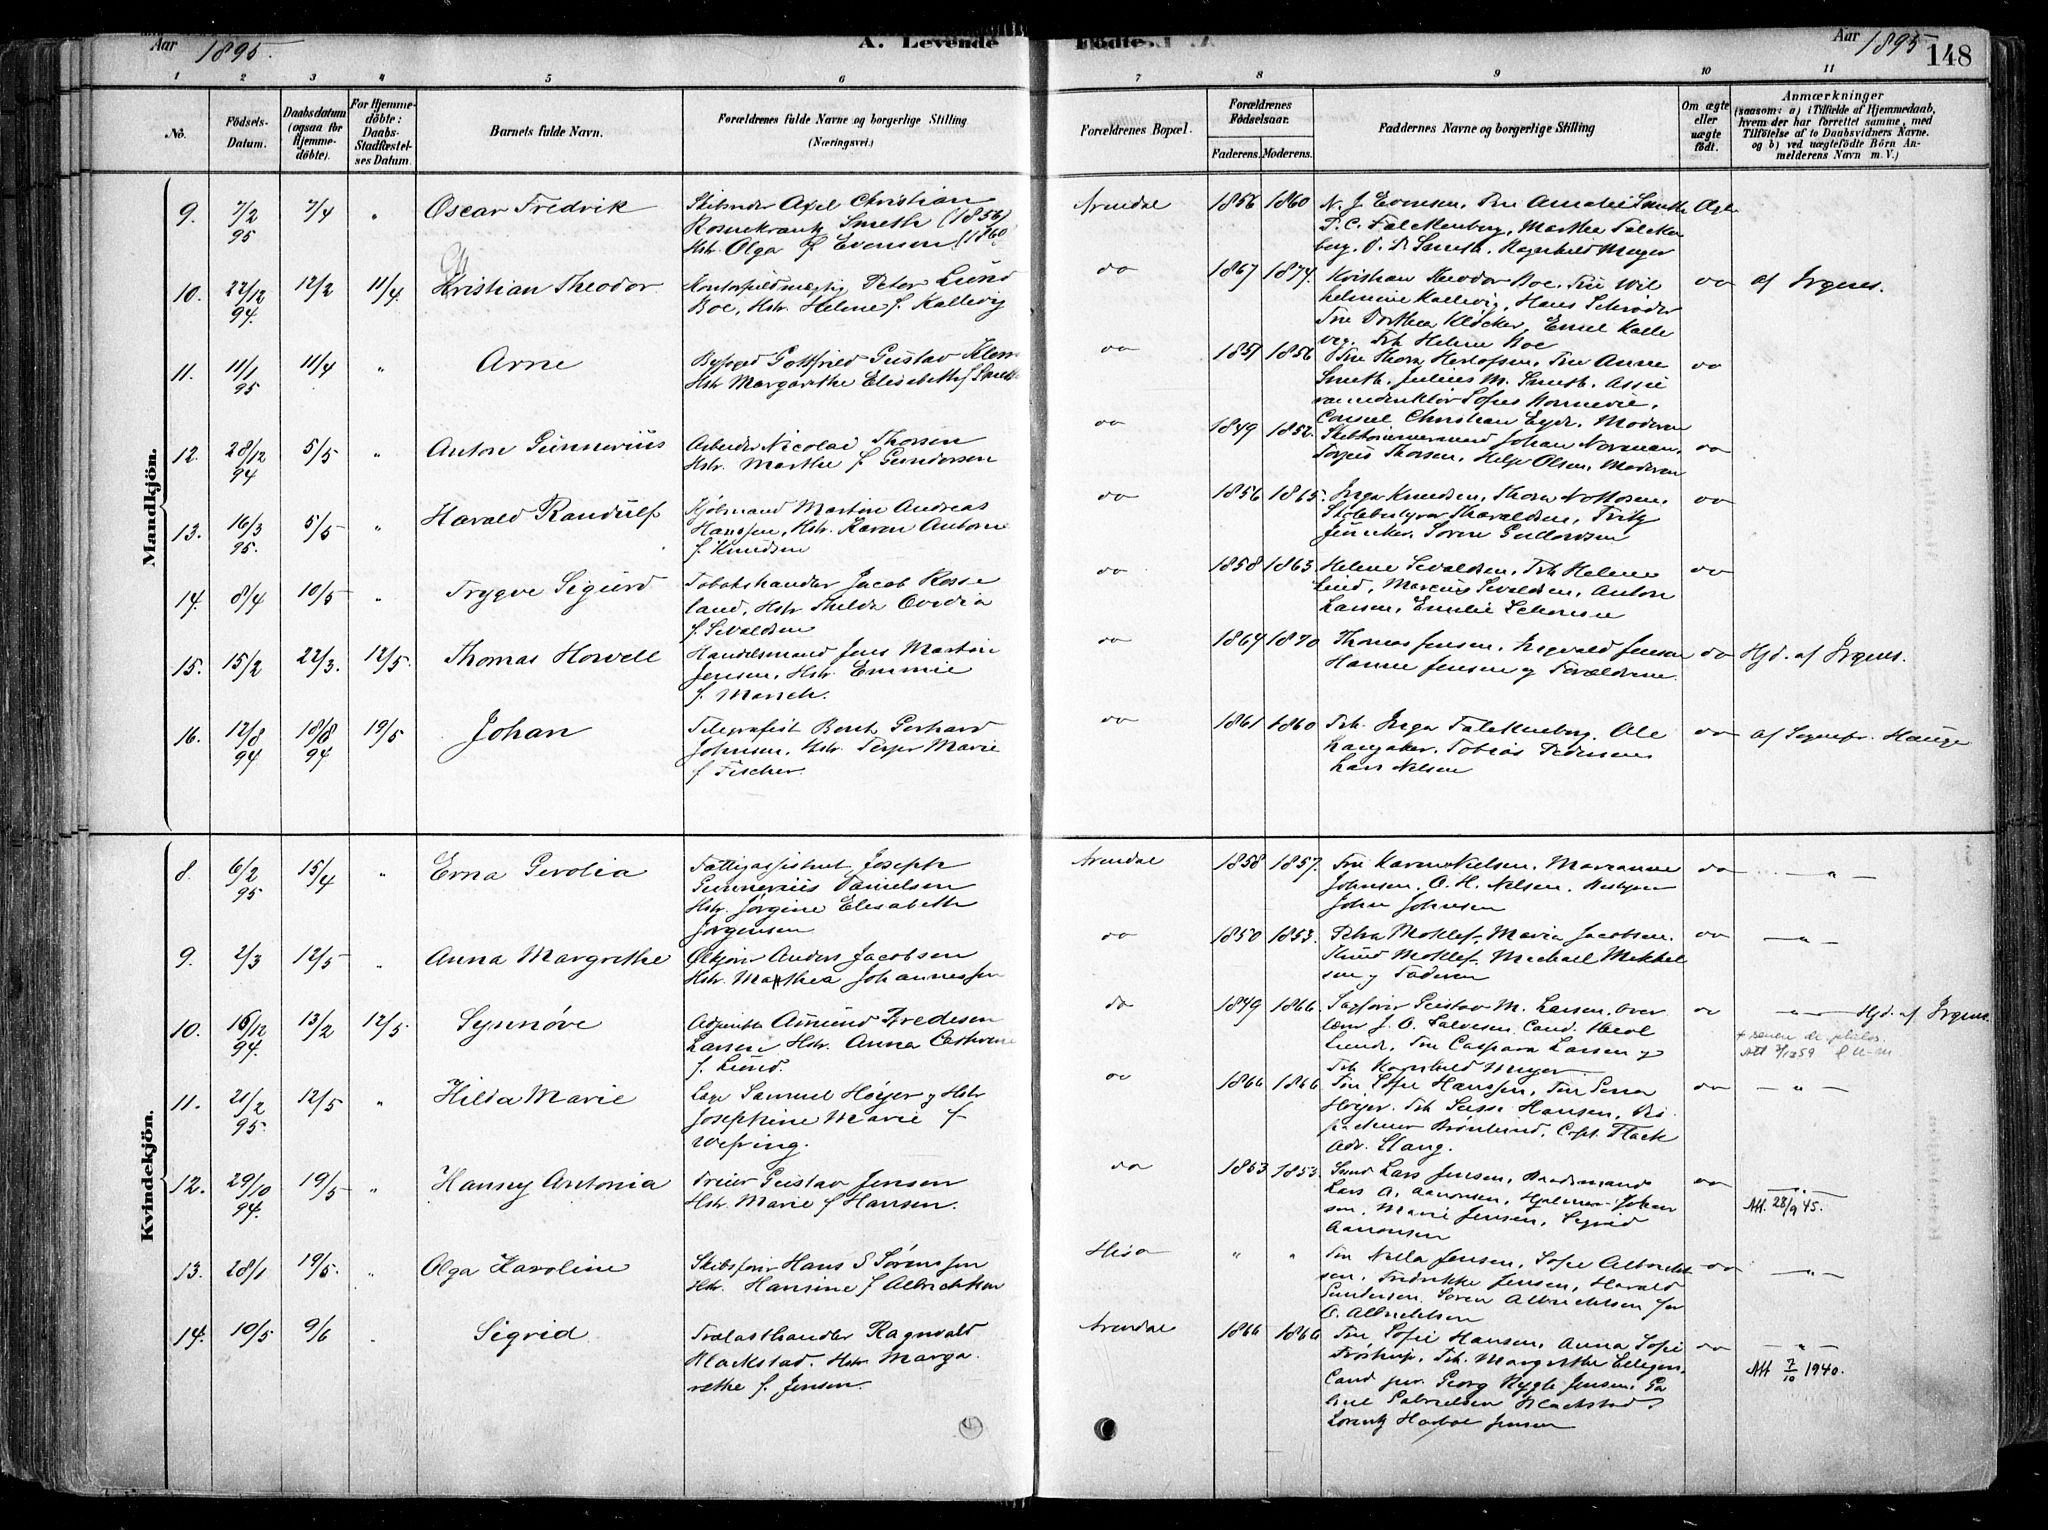 Aar 1895. A. Levende Fødte. Aar 1895 148
1 2 3 4 5 6 7 8 9 10 11
No.
Fødsels-Datum.
Daabsdatum (ogsaa for Hjemme-döbte).
For Hjemme-döbte: Daabs-Stadfæstel-ses Datum.
Barnets fulde Navn.
Forældrenes fulde Navne og borgerlige Stilling (Næringsvei.)
Forældrenes Bopæl.
Forældrenes Födselsaar.
Faderens. Moderens.
Faddernes Navne og borgerlige Stilling
Om ægte eller uægte födt.
Anmærkninger
(saasom: a) i Tilfælde af Hjemmedaab,
hvem der har forrettet samme, med
Tilföielse af to Daabsvidners Navne.
og b) ved uægtefödte Börn An-
melderens Navn m. V.)
Mandkjön.
9. 7/2 95 7/4 " Oscar Fredrik
Axel Christian
Rosenkrantz Smeth (1856)
Hstr Olga f Evensen (1860
Arendal 1856 1860
N. J. Evensen, Frk Amalie Smeth
T. C. Falckenberg, Marthe Falcken
berg, Ragnhild Meyer
10. 22/12 94. 12/2 11/4 Kristian Theodor
Kontorfuldmægtig Peter Lund
Boe, Hstr. Helene f. Kallevig
do 1867 1874.
Kristian Theodor Boe, Fru Wil
helmine Kallevig, Hans Schrøder
Fru Dorthea Kløcker, Emil Kalle
vig, Frk Helene Boe
do af Irgens.
11. 11/1 95 11/4 " Arne
Byfoged Gottfried Gustav Klem
Hstr Margarethe Elisabeth f Smeth
do 1851 1856
Fru Thora Herlofsen, Fru Anne
Smeth, Julius M. Smeth, Assu
randedirektør Sofus
Consul Christian Eyde, Moderen
do
12. 28/12 94 5/5 " Anton Gunnerius
Arbeider Nicolai Thorsen
Hstr. Marthe f Gundersen
do 1849 1852.
Skibstømmermand Johan Norman,
Torgus Thorsen, Helge Olsen, Moderen
do
13. 16/3 95. 5/5 " Harald Randulf
Kjøbmand Martin Andreas
Hanssen, Hstr. Karen Antonie
f. Knudsen
do 1856 1865.
Inga Knudsen, Thora
Skolebestyrer Tharaldsen, Fritz
Juncker, Søren Gullovdsen
do
14. 8/4 10/5 " Trygve Sigurd
Tobakshandler Jacob Rosse
land, Hstr Thilda Ovidia
f. Sevaldsen
do 1858 1863.
Helene Sevaldsen, Frk Helene
Lund, Marcus Sevaldsen, Anton
Larsen, Emilie
do
15. 15/2 22/3. 12/5 Thomas Howell
Handelsmand Jens Martin
Jensen, Hstr. Emmie
f. March.
do 1864 1870
Thomas Jensen, Ingvald Jensen
Hanne Jensen og Forældrene.
do Hjd. af Irgens.
16. 12/8 94 18/8 94 19/5 Johan
Telegrafist Bent Gerhard
Johnsen, Hstr. Marie
f Fischer.
do 1861 1860
Frk. Inga Falckenberg, Ole
Langaker, Tobias Pedersen
Lars Nilsen
do af Sognepr. Hauge
Kvindekjön.
8. 6/2 95 15/4 " Erna Gerolia
Fattigassistent Joseph
Gunnerius Danielsen
Hstr. Jørgine Elisabeth
Jørgensen
Arendal 1858 1857.
Fru Karen Nilsen, Marianne
Johnsen, O. H. Nilsen,
John Johnsen
do "
9. 2/3 12/5 " Anna Margrethe
Anders Jacobsen
Hstr. Mathea Johannessen
do 1850 1853.
Petra Mokles, Maria Jacobsen,
Knud Mokles, Michael Mikkel
sen og Faderen
do "
10. 16/12 94. 13/2 12/5 Synnøve
Adjunkt Amund Bredesen
Larsen Hstr. Anna Cathrine
f. Lund.
do 1849 1866
Sagfører Gustav M. Larsen, Over
lærer J. O. Salvesen, Cand.
Lund, Fru Caspara Larsen og
Frk Ragnhild Meyer
do " Hjd. af Irgens.
11. 21/2 95. 12/5 " Hilda Marie
Samuel Høyer og Hstr
Josephine Marie f
Wefring.
do 1866 1866
Fru Sofie Hanssen, Fru Lena
Høyer, Frk Susse Hansen,
Brønlund, Capt. Flack
Adv. Stang.
do "
12. 29/10 94. 19/5 " Hansy Antonia
Dreier Gustav Jensen
Hstr. Marie f Hansen.
do 1853 1853.
Lars Jensen,
Lars A. Aanonsen, Hjalmar Johan
sen, Marie Jensen, Sigrid
Aanonsen
do " Att. 28/9 45.
13. 28/1 19/5. " Olga Karoline
Skibsfører Hans S Sørenssen
Hstr. Hansine f Albrichtsen
Hisø " "
Fru Nilla Jensen, Sofie Albricht
sen, Fredrikke Jensen, Harald
Gundersen, Søren Albrichtsen for
O. Albrichtsen
do "
14. 10/5 9/6 " Sigrid
Trælasthandler Ragnvald
Blackstad, Hstr. Marga
rethe f. Jensen.
Arendal 1866 1866
Fru Sofie Hansen, Anna Sofie
Trøstrup, Frk. Margrethe Ellegen,
Cand jur. Georg Bygle Jensen, Ga
briel Gabrielsen Blackstad,
Lorentz Harboe Jensen
do " Att 7/10 1940.